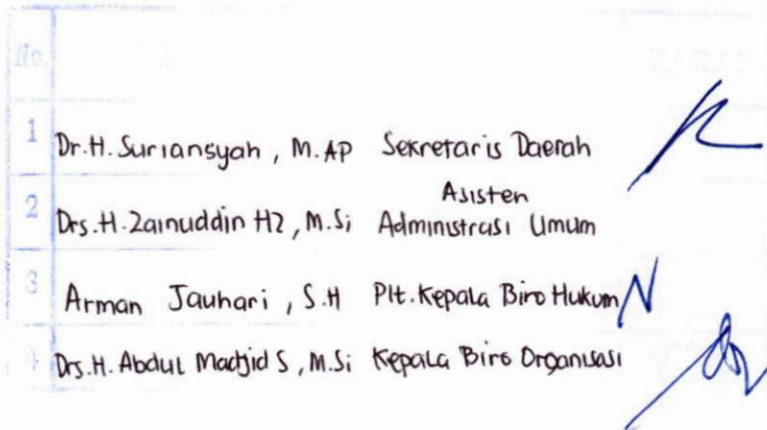 No.
1 Dr.H. Suriansyah, M.AP Sekretaris Daerah
2 Drs.H. Zainuddin HZ, M.Si Asisten Administrasi Umum
3 Arman Jauhari, S.H Plt. Kepala Biro Hukum
4 Drs.H. Abdul Madjid S, M.Si Kepala Biro Organisasi